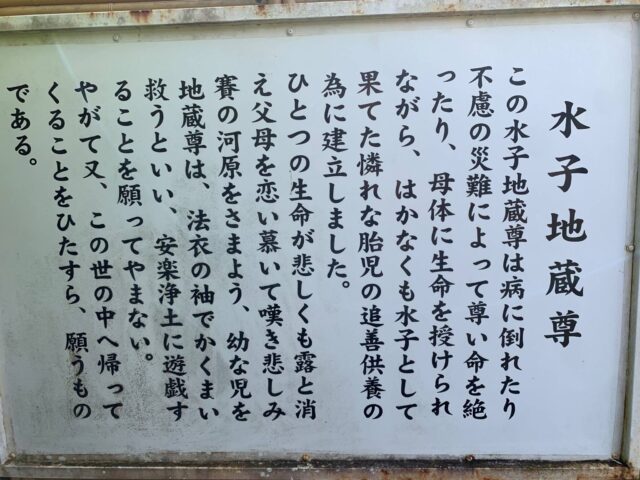 水子地蔵尊
この水子地蔵尊は病に倒れたり
不慮の災難によって尊い命を絶
ったり、母体に生命を授けられ
ながら、はかなくも水子として
果てた憐れな胎児の追善供養の
為に建立しました。
ひとつの生命が悲しくも露と消
え父母を恋い慕いて嘆き悲しみ
賽の河原をさまよう、幼な児を
地蔵尊は、法衣の袖でかくまい
救うといい、安楽浄土に遊戯す
ることを願ってやまない。
やがて又、この世の中へ帰って
くることをひたすら、願うもの
である。